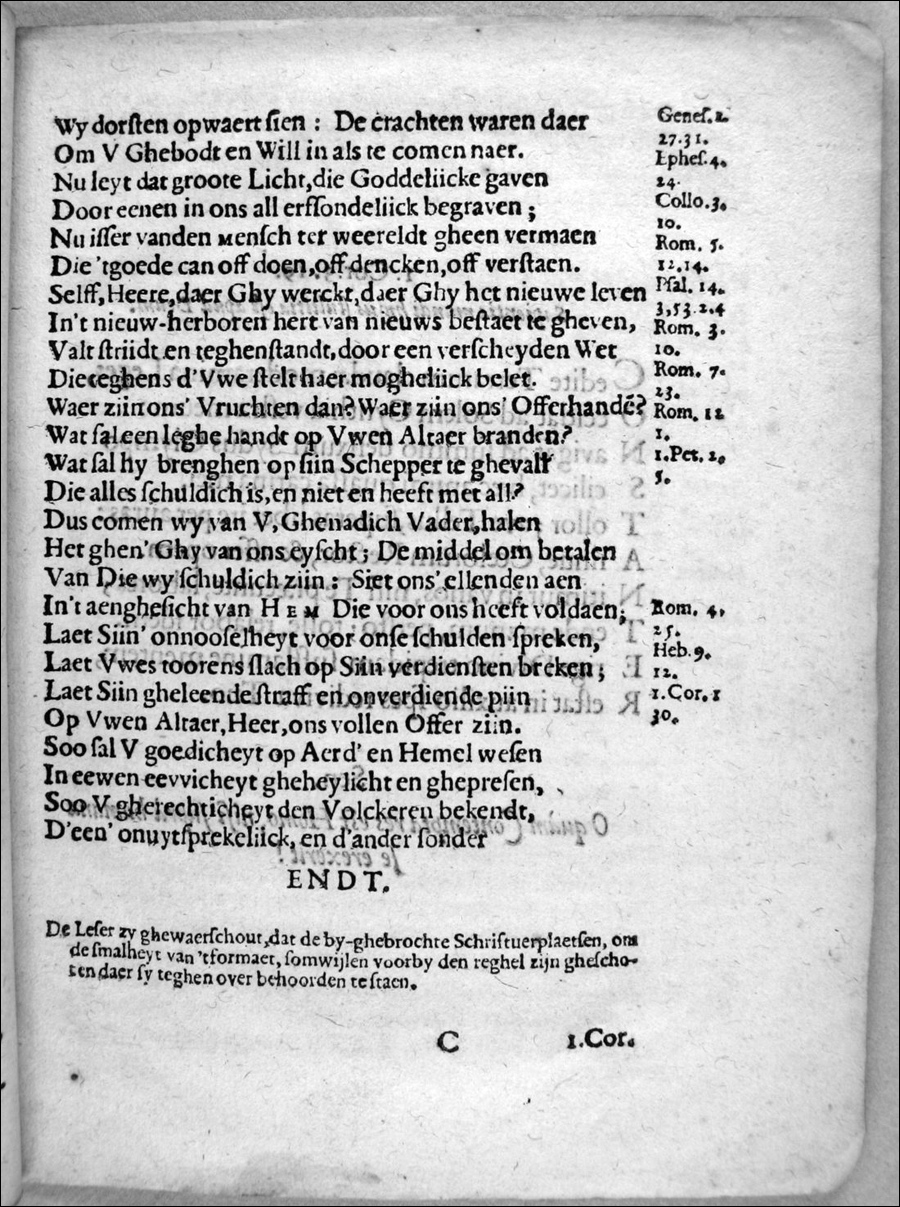 Wy dorſten opwaert ſien : De crachten waren daer
Om V Ghebodt en Will in als te comen naer.
Nu leyt dat groote Licht,die Goddeliicke gaven
Door eenen in ons all erfſondeliick begraven ;
Nu iſſer vanden menſch ter weereldt gheen vermaen
Die 'tgoede can off doen,off dencken,off verſtaen.
Selff,Heere,daer Ghy werckt,daer Ghy het nieuwe leven
In't nieuw-herboren hert van nieuws beſtaet te gheven,
Valt ſtriidt en teghenſtandt,door een verſcheyden Wet
Die teghens d'Vwe ſtelt haer mogheliick belet.
Waer ziin ons' Vruchten dan? Waer ziin ons' Offerhandē?
Wat ſal een leghe handt op Vwen Altaer branden?
Wat ſal hy brenghen op ſiin Schepper te ghevall
Die alles ſchuldich is,en niet en heeft met all?
Dus comen wy van V,Ghenadich Vader,halen
Het ghen' Ghy van ons eyſcht ; De middel om betalen
Van Die wy ſchuldich ziin : Siet ons' ellenden aen
In't aengheſicht van HEM Die voor ons heeft voldaen;
Laet Siin' onnooſelheyt voor onſe ſchulden ſpreken,
Laet Vwes toorens ſlach op Siin verdienſten breken ;
Laet Siin gheleende ſtraff en onverdiende piin
Op Vwen Altaer,Heer,ons vollen Offer ziin.
Soo ſal V goedicheyt op Aerd' en Hemel weſen
In eewen eevvicheyt gheheylicht en ghepreſen,
Soo V gherechticheyt den Volckeren bekendt,
D'een' onuytſprekeliick, en d'ander ſonder
ENDT.
Geneſ. 1.
27.31.
Epheſ. 4.
24.
Colloſ. 3.
10.
Rom. 5.
12.14.
Pſal. 14.
3,53.2.4
Rom. 3.
10.
Rom. 7.
23.
Rom. 12
1.
1.Pet. 2.
5.
Rom. 4.
25.
Heb. 9.
12.
1.Cor. 1
30.
De Leſer zy ghewaerſchout,dat de by-ghebrochte Schriftuerplaetſen, om
de ſmalheyt van 'tformaet, ſomwijlen voorby den reghel zijn gheſcho-
ten daer ſy teghen over behoorden te ſtaen.
C 1.Cor.